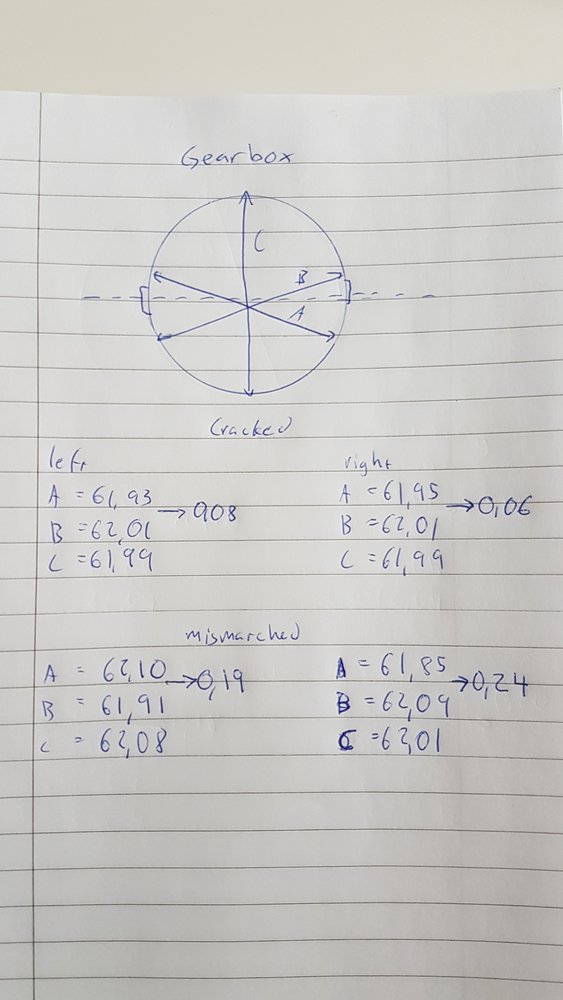 Gearbox
C
B
A
Cracked
left
A = 61,93 → 0,08
B = 62,01
C = 61,99
right
A = 61,95 → 0,06
B = 62,01
C = 61,99
mismarched
A = 62,10 → 0,19
B = 61,91
C = 62,08
A = 61,85 → 0,24
B = 62,09
C = 62,01